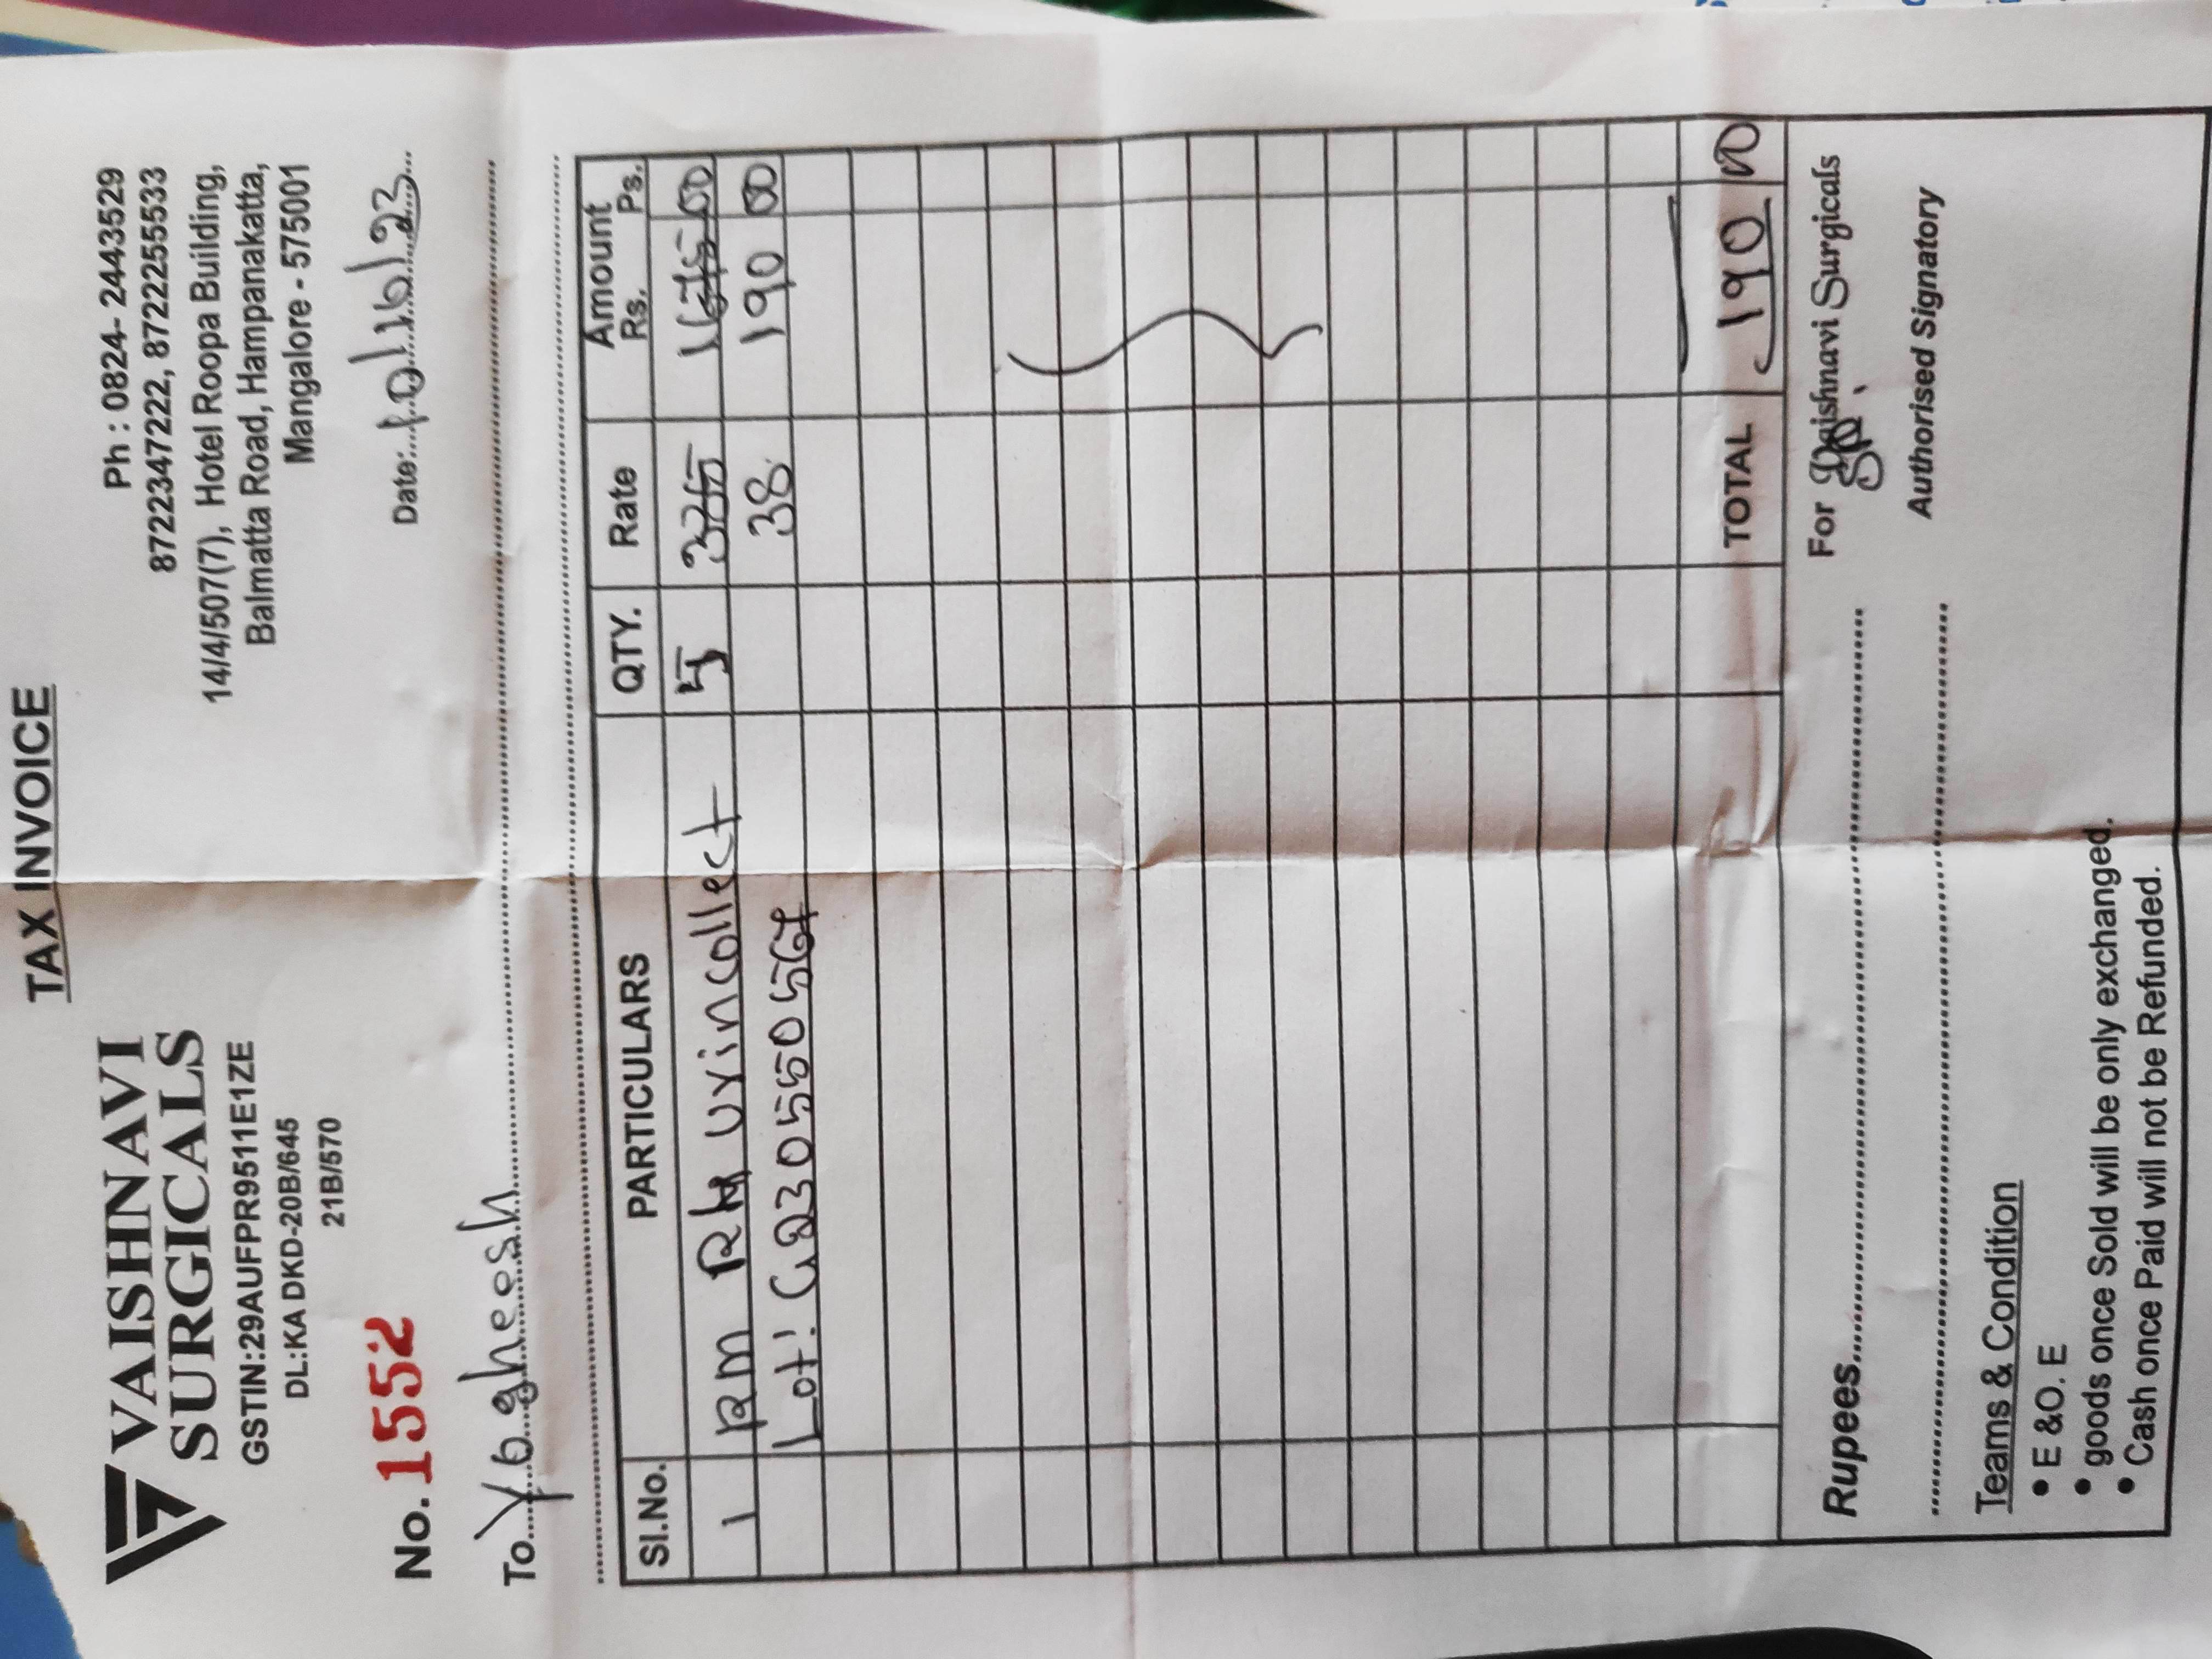 TAX INVOICE
VAISHNAVI
SURGICALS
GSTIN:29AUFPR9511E1ZE
DL:KA DKD-20B/645
21B/570
Ph : 0824- 2443529
8722347222, 8722255533
14/4/507(7), Hotel Roopa Building,
Balmatta Road, Hampanakatta,
Mangalore - 575001
No. 1552
Date: 10/10/23
To Yogheesh
Sl.No. PARTICULARS QTY. Rate Amount
Rs. Ps.
1 RM urincollect 5 335 1675 00
Lot: G230550567 38 190 00
TOTAL 190 00
Rupees
For Vaishnavi Surgicals
Authorised Signatory
Teams & Condition
• E &O. E
• goods once Sold will be only exchanged.
• Cash once Paid will not be Refunded.